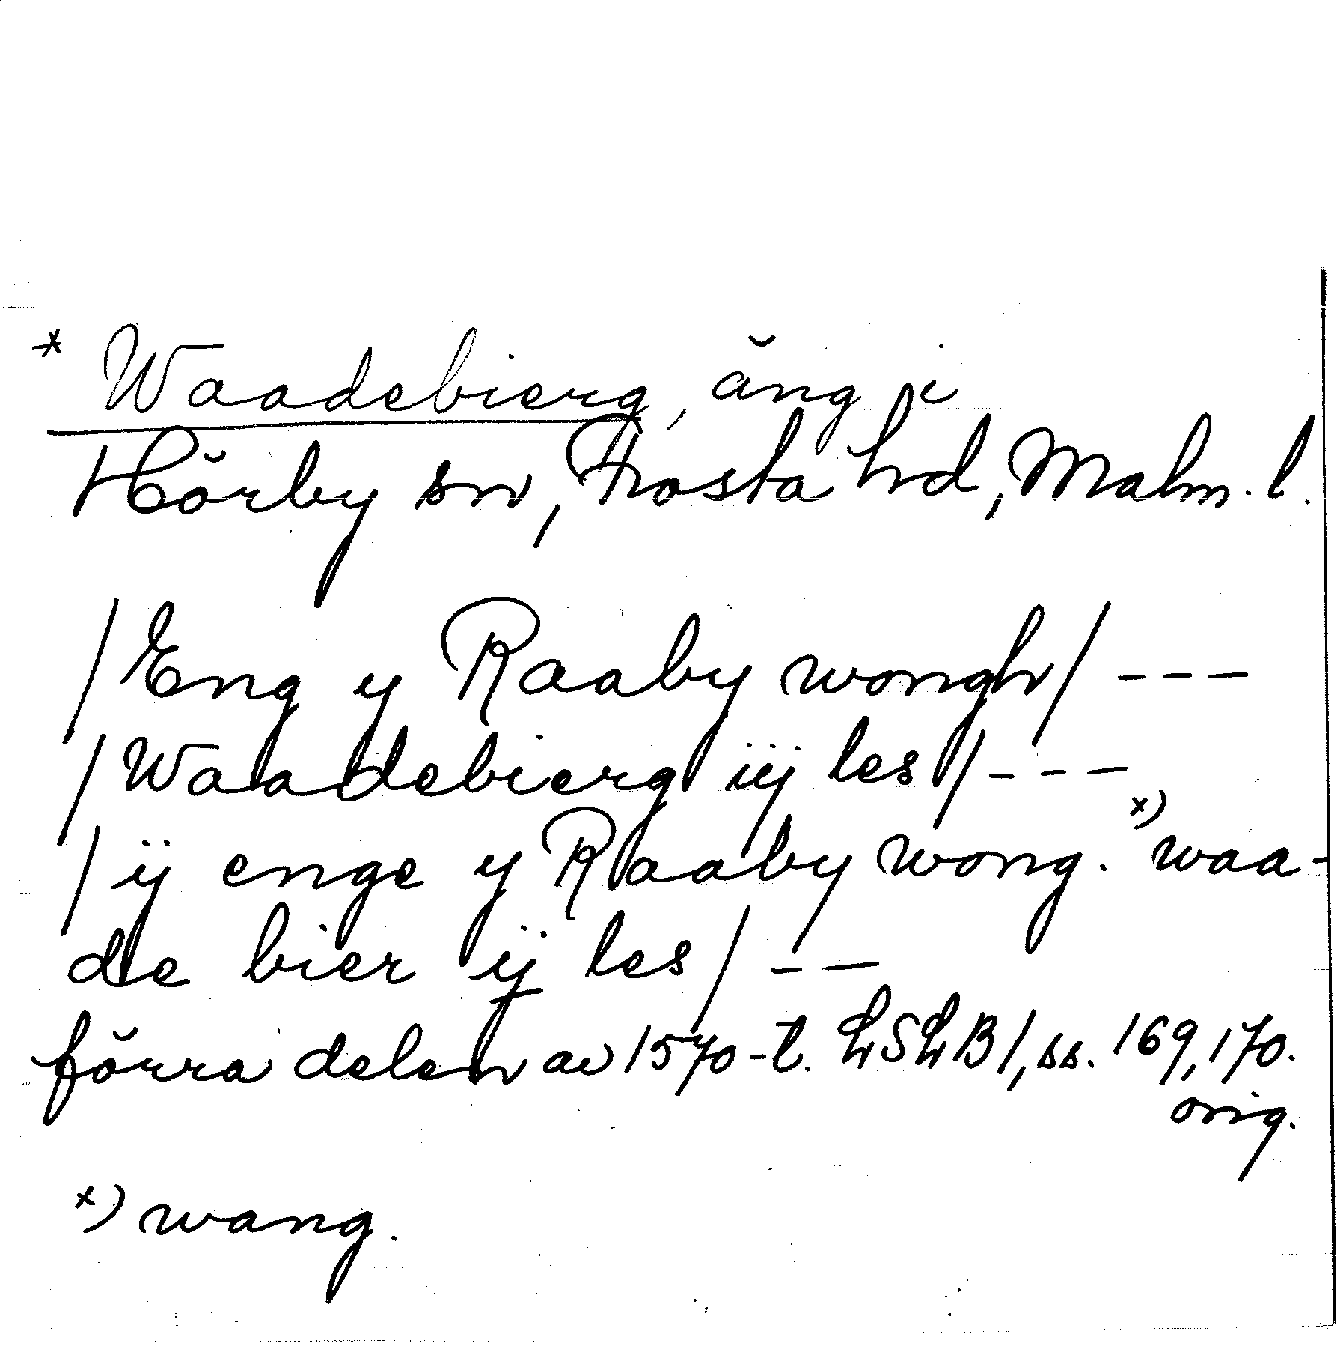 * Waadebierg, äng i
Hörby sn, Frosta hd, Malm. l.
/Eng y Raaby wongh/ ---
/Waadebierg iij les/ ---
/ij enge y Raaby wong. x) waa-
de bier ij les/ --
förra delen av 1570-t. LSLB 1, ss. 169, 170.
orig.
x) wang.